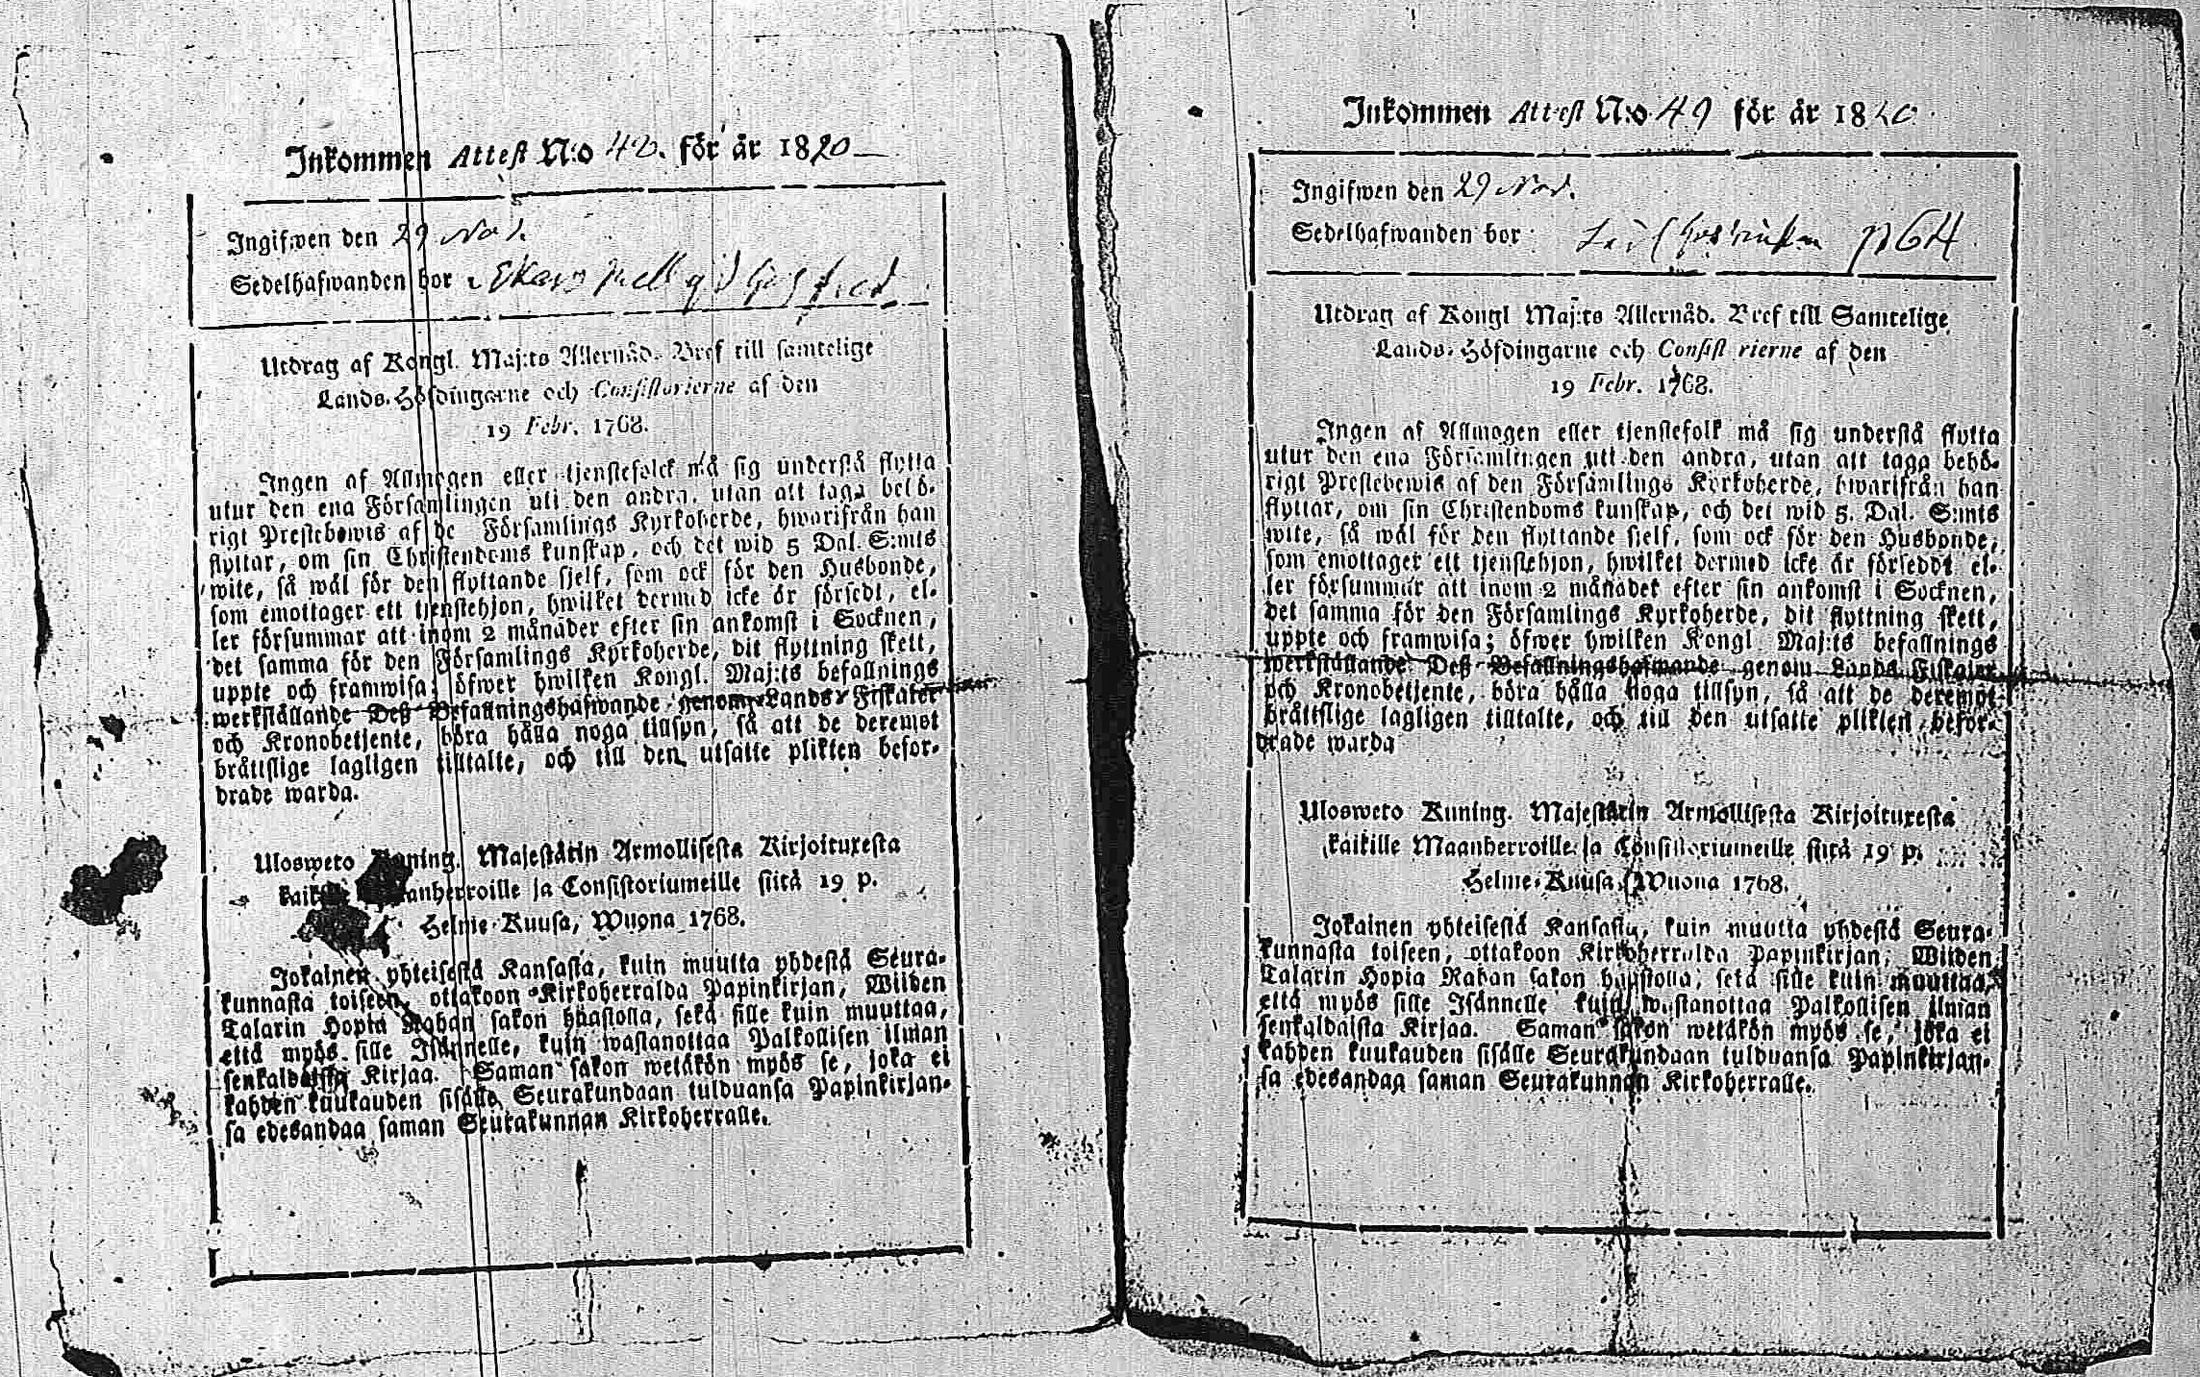 Inkommen Attest N:o 48. för år 1820
Ingifwen den 29 Nov.
Sedelhafwanden bor
Utdrag af Kongl. Maj:ts Allernåd. Bref till samtelige
Lands-Höfdingarne och Consistorierne af den
19 Febr. 1768.
Ingen af Allmogen eller tjenstefolck må sig understå flytta
utur den ena Församlingen uti den andra, utan att taga behö-
rigt Prestebewis af de Församlings Kyrkoherde, hwarifrån han
flyttar, om sin Christendoms kunskap, och det wid 5 Dal. S:mts
wite, så wål för den flyttande sjelf, som ock för den Husbonde,
som emottager ett tjenstehjon, hwilket dermed icke är försedt, el-
ler försummar att inom 2 månader efter sin ankomst i Socknen,
det samma för den Församlings Kyrkoherde, dit flyttning skett,
uppte och framwisa; öfwer hwilken Kongl. Maj:ts befallnings
werkställande Deß Befallningshafwande genom Lands-Fiskaler
och Kronobetjente, böra hålla noga tillsyn, så att de deremot
bråttslige lagligen tilltalte, och till den utsatte plikten befor-
drade warda.
Ulosweto Kuning. Majestätin Armollisesta Kirjoituxesta
Maanherroille ja Consistoriumeille siitä 19 p.
Helme-Kuusa, Wuona 1768.
Jokainen yhteisestä Kansasta, kuin muutta yhdestä Seura-
kunnasta toiseen, ottakoon Kirkoherralda Papinkirjan, Wiiden
Talarin Hopia Rahan sakon haastolla, sekä sille kuin muuttaa,
että myös sille Isännelle, kuin wastanottaa Palkollisen ilman
senkaldaista Kirjaa. Saman sakon wetäkön myös se, joka ei
kahden kuukauden sisälle Seurakundaan tulduansa Papinkirjan-
sa edesandaa saman Seurakunnan Kirkoherralle.
Inkommen Attest N:o 49 för år 1820
Ingifwen den 29 Nov.
Sedelhafwanden bor p 64
Utdrag af Kongl Maj:ts Allernåd. Bref till Samtelige
Lands-Höfdingarne och Consist rierne af den
19 Febr. 1768.
Ingen af Allmogen eller tjenstefolk må sig understå flytta
utur den ena Församlingen uti den andra, utan att taga behö-
rigt Prestebewis af den Församlings Kyrkoherde, hwarifrån han
flyttar, om sin Christendoms kunskap, och det wid 5. Dal. S:mts
wite, så wål för den flyttande sjelf, som ock för den Husbonde,
som emottager ett tjenstehjon, hwilket dermed icke är förseddt el-
ler försummar att inom 2 månader efter sin ankomst i Socknen,
det samma för den Församlings Kyrkoherde, dit flyttning skett,
uppte och framwisa; öfwer hwilken Kongl Maj:ts befallnings
werkställande Deß Befallningshafwande genom Lands Fiskaler
och Kronobetjente, böra hålla noga tillsyn, så att de deremot
bråttslige lagligen tilltalte, och till den utsatte plikten befor-
drade warda
Ulosweto Kuning. Majestätin Armollisesta Kirjoituxesta
kaikille Maanherroille ja Consistoriumeille siitä 19 p.
Helme-Kuusa, Wuona 1768.
Jokainen yhteisestä Kansasta, kuin muutta yhdestä Seura-
kunnasta toiseen, ottakoon Kirkoherralda Papinkirjan, Wiiden
Talarin Hopia Rahan sakon haastolla, sekä sille kuin muuttaa,
että myös sille Isännelle kuin wastanottaa Palkollisen ilman
senkaldaista Kirjaa. Saman sakon wetäkön myös se, joka ei
kahden kuukauden sisälle Seurakundaan tulduansa Papinkirjan-
sa edesandaa saman Seurakunnan Kirkoherralle.